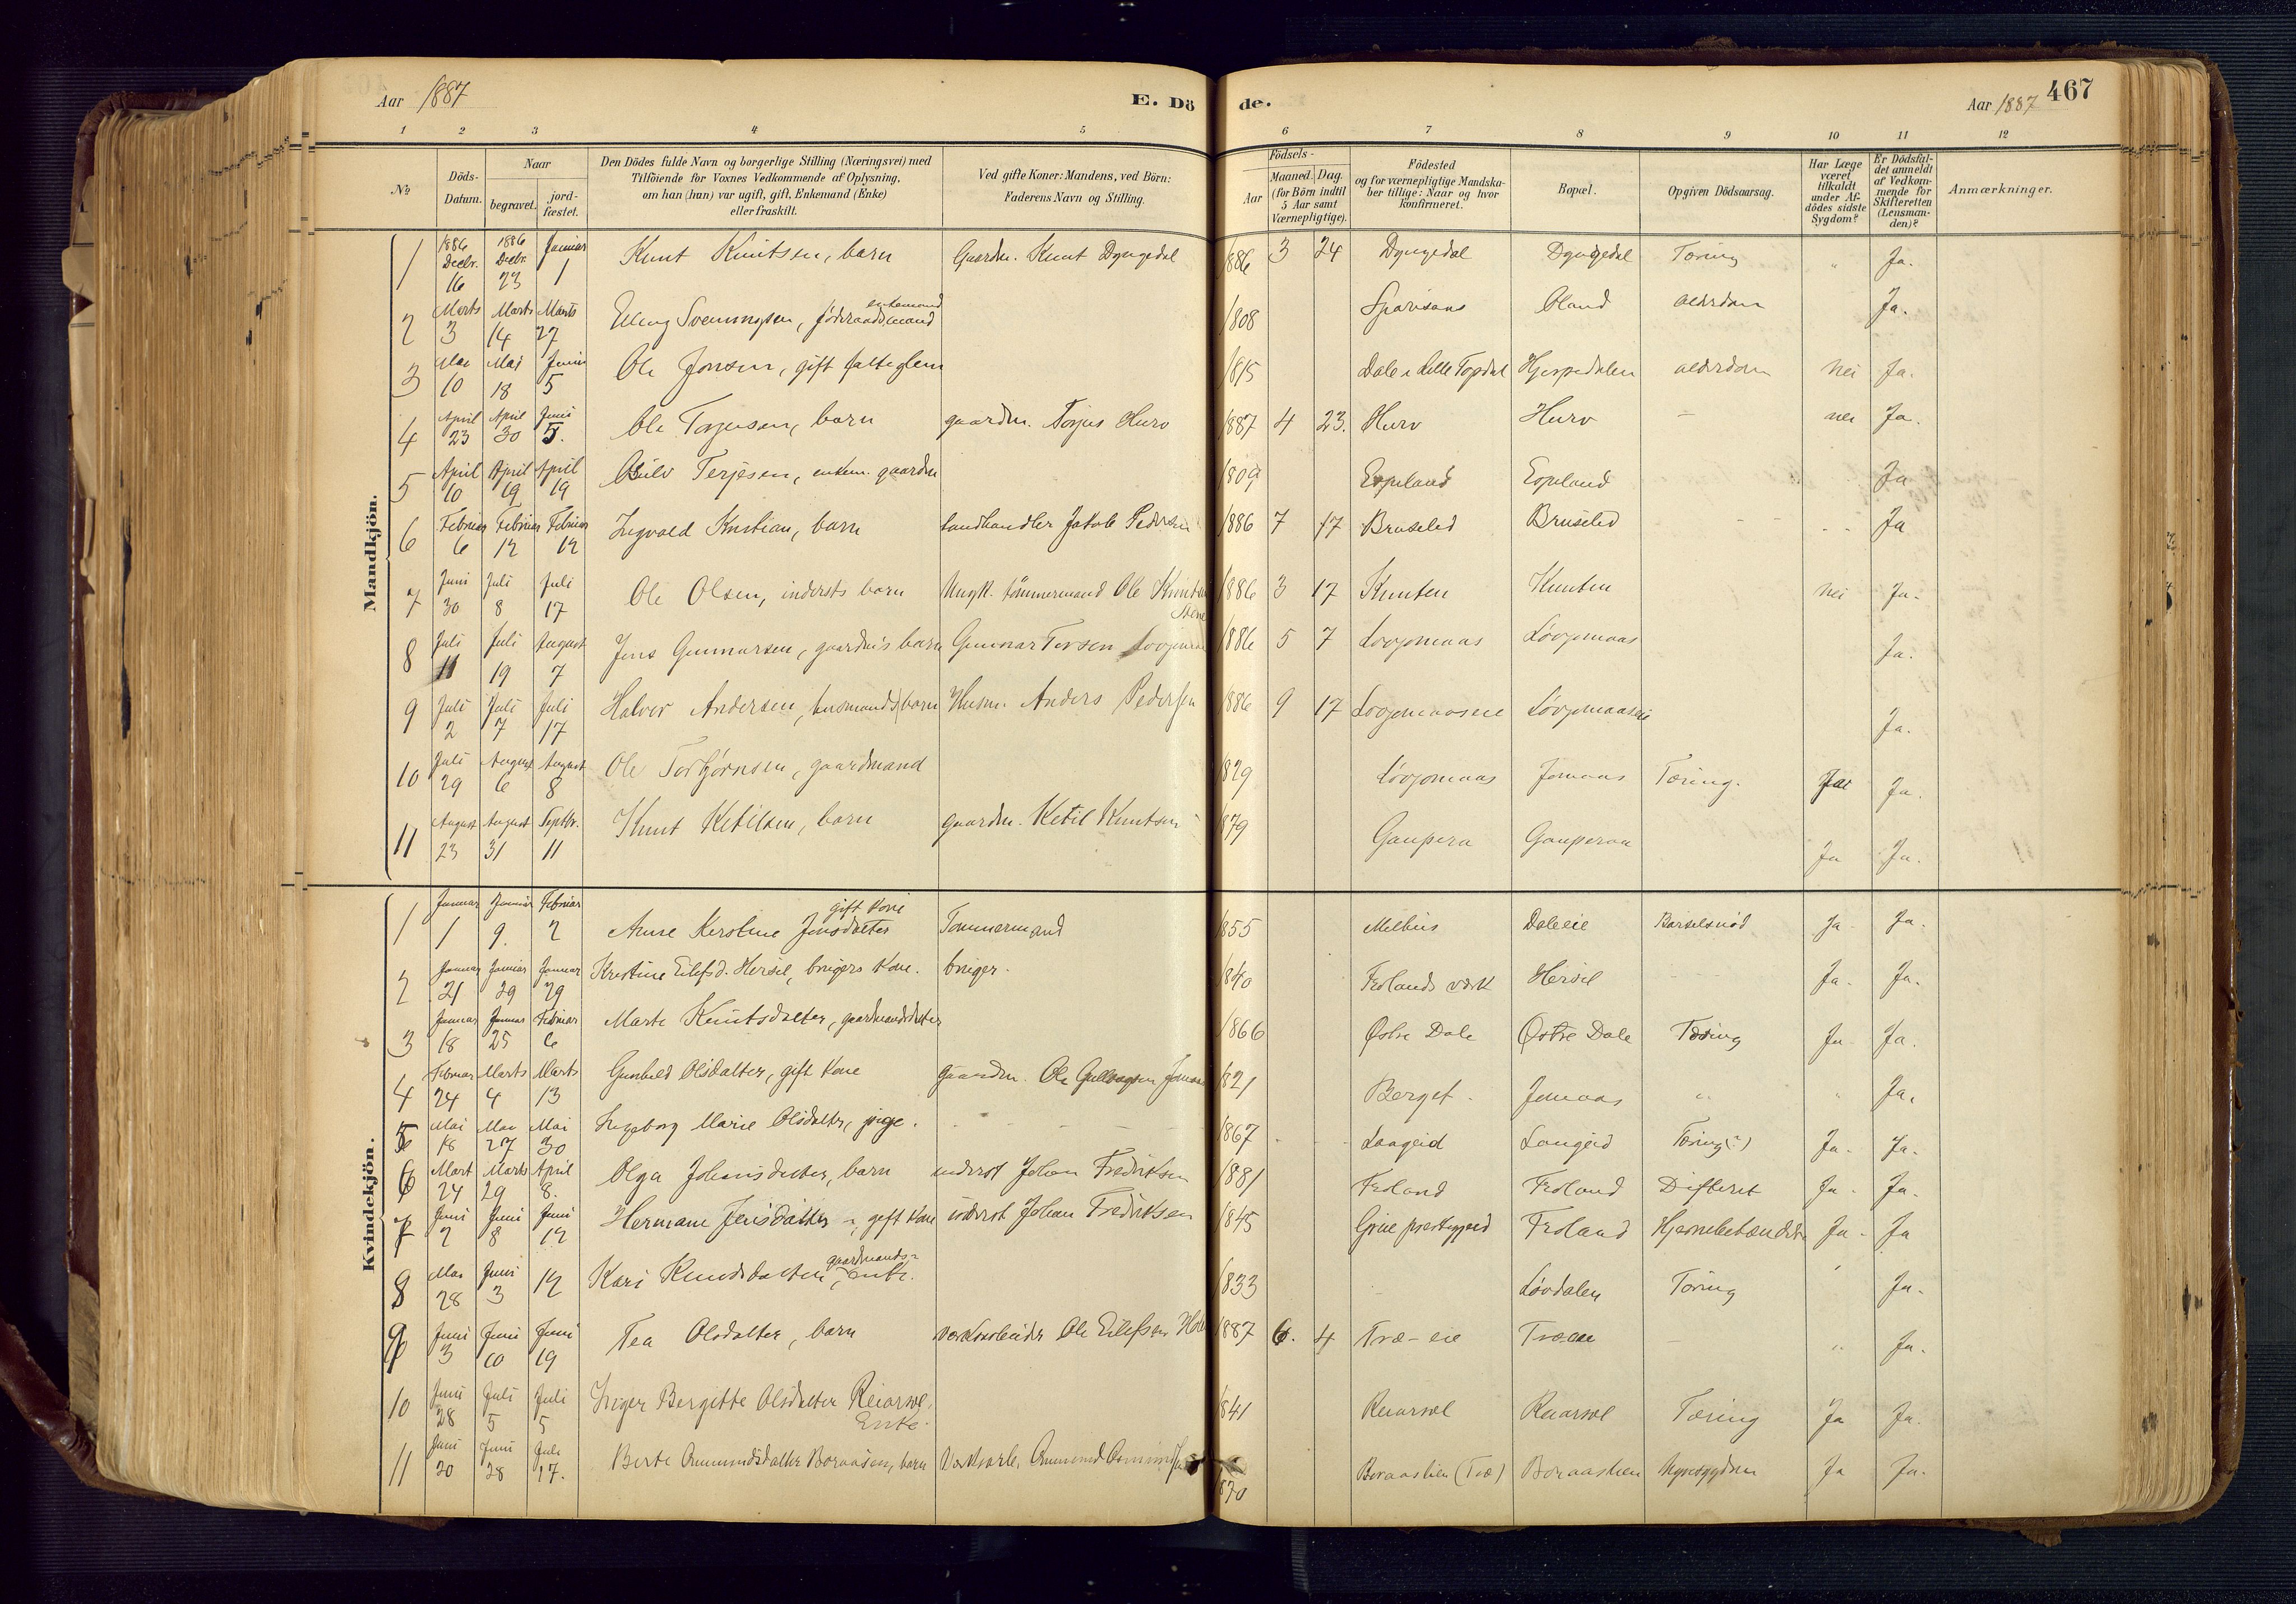 Aar 1887 E. Dö de. Aar 1887 467
1 2 3 4 5 6 7 8 9 10 11 12
No
Döds-Datum.
Naar
begravet.
jord-fæstet.
Den Dödes fulde Navn og borgerlige Stilling (Næringsvei) med
Tilföiende for Voxnes Vedkommende af Oplysning,
om han (hun) var ugift, gift, Enkemand (Enke)
eller fraskilt.
Ved gifte Koner: Mandens, ved Börn:
Faderens Navn og Stilling.
Födsels-
Aar
Maaned. Dag.
(for Börn indtil
5 Aar samt
Værnepligtige).
Födested
og for værnepligtige Mandska-
ber tillige: Naar og hvor
konfirmeret.
Bopæl.
Opgiven Dödsaarsag.
Har Læge
været
tilkaldt
under Af-
dödes sidste
Sygdom?
Er Dödsfal-
det anmeldt
af Vedkom-
mende for
Skifteretten
(Lensman-
den)?
Anmærkninger.
Mandkjön.
1 1886 Decbr. 16 1886 Decbr. 23 Januar 1 Knut Knutsen, barn Gaardm. Knut Dyngedal 1886 3 24 Dyngedal Dyngedal Tæring " Ja.
2 Marts 3 Marts 14 Marts 27 Elling Svenningsen, føderaadsmand enkemand 1808 Oland alderdom Ja.
3 Mai 10 Mai 18 Juni 5 Ole Jonsen, gift fattiglem 1815 Dale i lille Topdal Hjerpedalen alderdom Nei Ja.
4 April 23 April 30 Juni 5. Ole Torjusen, barn gaardm. Torjus Hurv 1887 4 23. Hurv Hurv – nei Ja.
5 April 10 April 19 April 19 Terjesen, enkem. gaardm 1809 Espeland Espeland Ja
6 Februar 6 Februar 12 Februar 12 Ingvald Kristian, barn landhandler Jakob Pedersen 1886 7 17 Bruseled Bruseled Ja
7 Juni 30 Juli 8 Juli 17 Ole Olsen, indersts barn Ungk. tömmermand Ole 1886 3 17 Knuten Knuten Nei Ja.
8 Juli 11 Juli 19 August 7 Jens Gunnarsen, gaardm's barn Gunnar Torsen 1886 5 7 Løvjomaas Løvjomaas Ja.
9 Juli 2 Juli 7 Juli 17 Halvor Andersen, husmands barn Husm. Anders Pedersen 1886 9 17 Løvjomaaseie Løvjomaaseie Ja.
10 Juli 29 August 6 August 8 Ole Torbjørnsen, gaardmand 1829 Løvjomaas Jomaas Tæring. Ja Ja.
11 August 23 August 31 Septbr. 11 Knut Ketilsen, barn gaardm. Ketil Knutsen 1879 Gauperaa Gauperaa Ja Ja.
Kvindekjön.
1 Januar 1 Januar 9. Februar 2 Anne Kirstine Jensdatter gift kone Tømmermand 1855 Melhus Daleeie Barselsnød Ja. Ja.
2 Januar 21 Januar 29 Januar 29 Kristine Eilefsd. Hersel, brugers kone. bruger. 1840 Frolands værk Hersel Ja. Ja.
3 Januar 18 Januar 25 Februar 6 Marte Knutsdatter, gaardmandsdatter 1866 Østre Dale Østre Dale Tæring Ja Ja.
4 Februar 24 Marts 4 Marts 13 Gunhild Olsdatter, gift kone gaardm. Ole Gullvagsen Jomaas 1821 Berget. Jomaas " " Ja.
5 Mai 18 Mai 27 Mai 30 Ingeborg Marie Olsdatter, pige. 1867 Laugeid Laugeid Tæring(?) Ja. Ja.
6 Mart 24 Marts 29 April 8. Olga Johansdatter, barn inderst Johan Fredriksen 1881 Froland Froland Difterit Ja. Ja.
7 Juni 2 Juni 8 Juni 12 Hermane Jensdatter, gift kone inderst Johan Fredriksen 1845 Froland Hjernebetændelse Ja. Ja
8 Mai 28 Juni 3 12 Kari Knudsdatter, gaardmands- enke. 1833 Løvdalen Tæring Ja.
9 Juni 3 Juni 10 Juni 19 Tea Olsdatter, barn Verksarbeider Ole Eilefsen 1887 6. 4 Træ-eie Træeie – " Ja.
10 Juni 28 Juli 5 Juli 5 Inger Bergitte Olsdatter Reiarsøl, Enke. 1841 Reiarsøl Reiarsøl Tæring Ja Ja.
11 Juni 20 Juni 28 Juli 17. Berte Ommundsdatter Boraasen, barn Verksarb. Ommund 1870 Boraaslien (Træ) Boraaslien Nyresygdom Ja Ja.